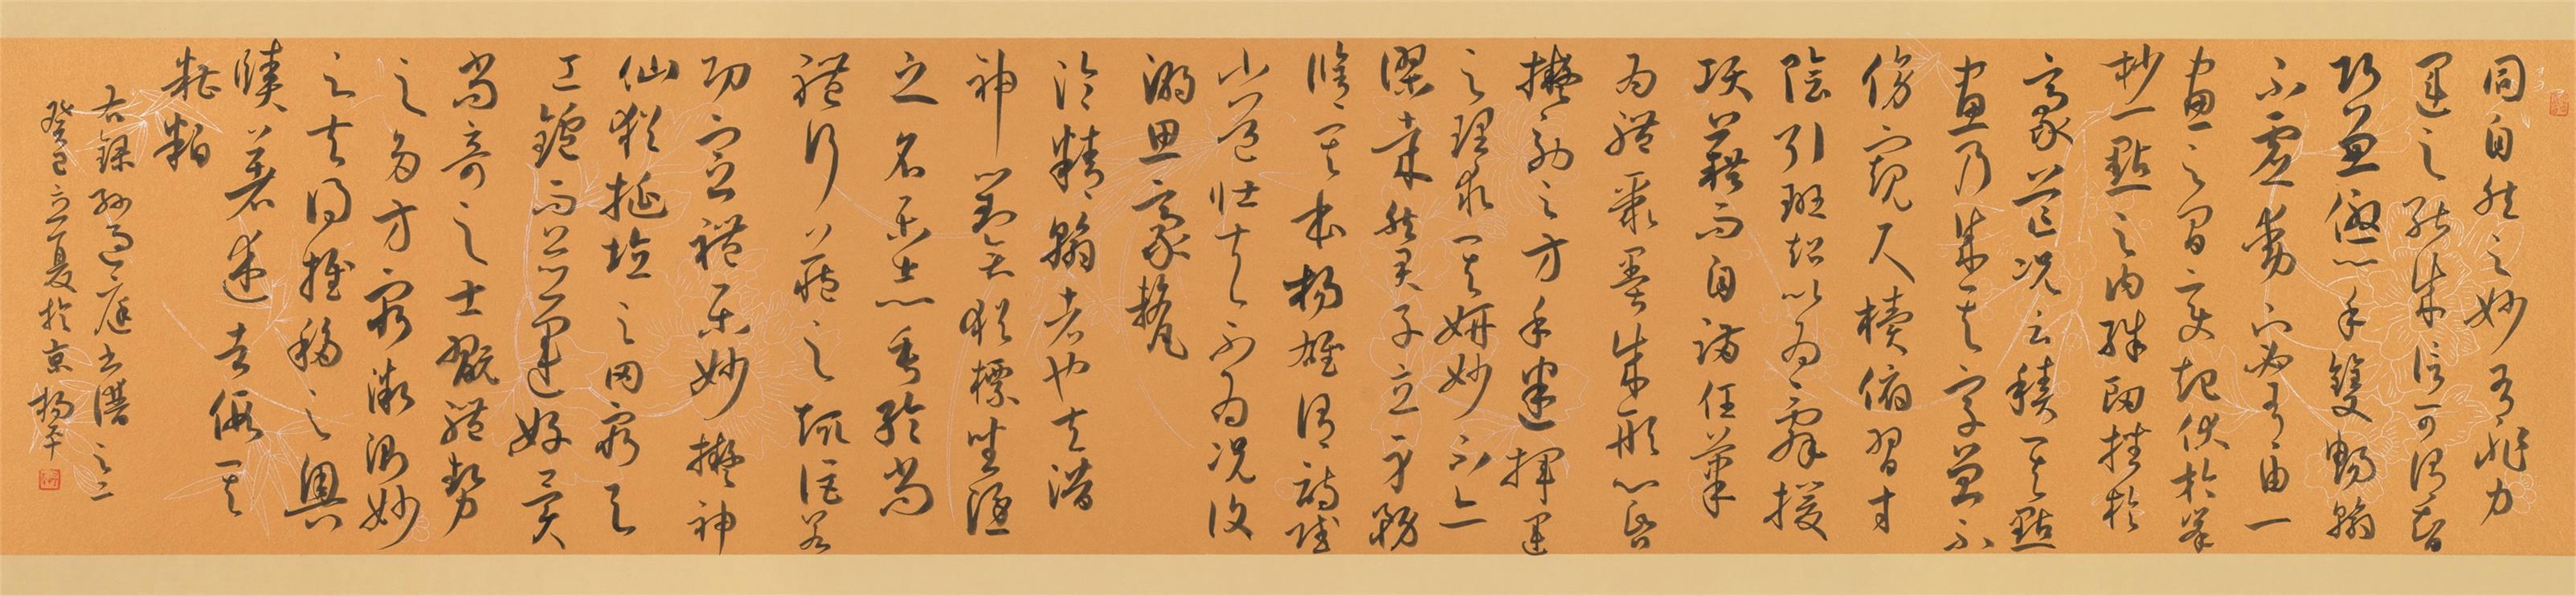 同自然之妙有非力
運之能成信可謂智
巧兼優心手雙暢翰
不虛動下必有由一
畫之間變起伏於峯
杪一點之內殊衄挫於
豪芒況云積其點
畫乃成其字曾不
傍窺尺牘俯習寸
陰引班超以為辭援
項籍而自滿任筆
為體聚墨成形心昏
擬效之方手迷揮運
之理求其妍妙不亦
謬哉然君子立身務
脩其本楊雄謂詩賦
小道壯夫不為況復
溺思豪氂
淪精翰者也夫潛
神對奕猶標坐隱
之名樂志垂綸尚
體行藏之趣詎若
功宣禮樂妙擬神
仙猶挻埴之罔窮与
工鑪而並運好異
尚奇之士翫體勢
之多方窮微測妙
之夫得推移之奧
賾著述者假其
糟粕
右錄孫過庭書譜之一
癸巳立夏於京楊平